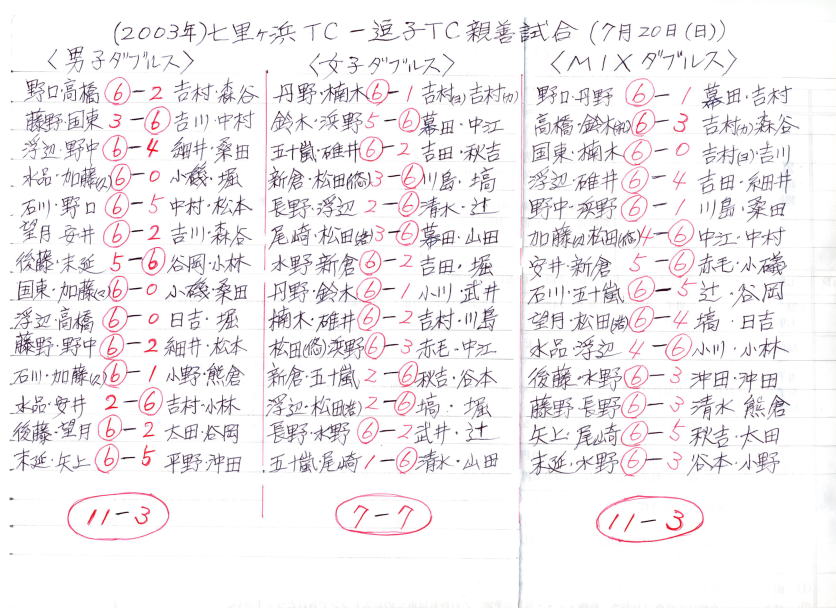 (2003年)七里ヶ浜TC－逗子TC親善試合 (7月20日(日))
〈男子ダブルス〉
野口・高橋 6－2 吉村・森谷
藤野・国東 3－6 吉川・中村
浮辺・野中 6－4 細井・桑田
水品・加藤(久) 6－0 小磯・堀
石川・野口 6－5 中村・松本
望月・安井 6－2 吉川・森谷
後藤・末延 5－6 谷岡・小林
国東・加藤(久) 6－0 小磯・桑田
浮辺・高橋 6－0 日吉・堀
藤野・野中 6－2 細井・松本
石川・加藤(久) 6－1 小野・熊倉
水品・安井 2－6 吉村・小林
後藤・望月 6－2 太田・谷岡
末延・矢上 6－5 平野・沖田
11－3
〈女子ダブルス〉
丹野・楠木 6－1 吉村(日)吉村(カ)
鈴木・浜野 5－6 幕田・中江
五十嵐・碓井 6－2 吉田・秋吉
新倉・松田(脩) 3－6 川島・塙
長野・浮辺 2－6 清水・辻
尾崎・松田(岩) 3－6 幕田・山田
水野・新倉 6－2 吉田・堀
丹野・鈴木 6－1 小川・武井
楠木・碓井 6－2 吉村・川島
松田(脩)浜野 6－3 赤毛・中江
新倉・五十嵐 2－6 秋吉・谷本
浮辺・松田(岩) 2－6 塙・堀
長野・水野 6－2 武井・辻
五十嵐・尾崎 1－6 清水・山田
7－7
〈MIXダブルス〉
野口・丹野 6－1 幕田・吉村
高橋・鈴木(和) 6－3 吉村(カ)森谷
国東・楠木 6－0 吉村(日)吉川
浮辺・碓井 6－4 吉田・細井
野中・浜野 6－1 川島・桑田
加藤(久)松田(脩) 4－6 中江・中村
安井・新倉 5－6 赤毛・小磯
石川・五十嵐 6－5 辻・谷岡
望月・松田(岩) 6－4 塙・日吉
水品・浮辺 4－6 小川・小林
後藤・水野 6－3 沖田・沖田
藤野・長野 6－3 清水 熊倉
矢上・尾崎 6－5 秋吉・太田
末延・水野 6－3 谷本・小野
11－3